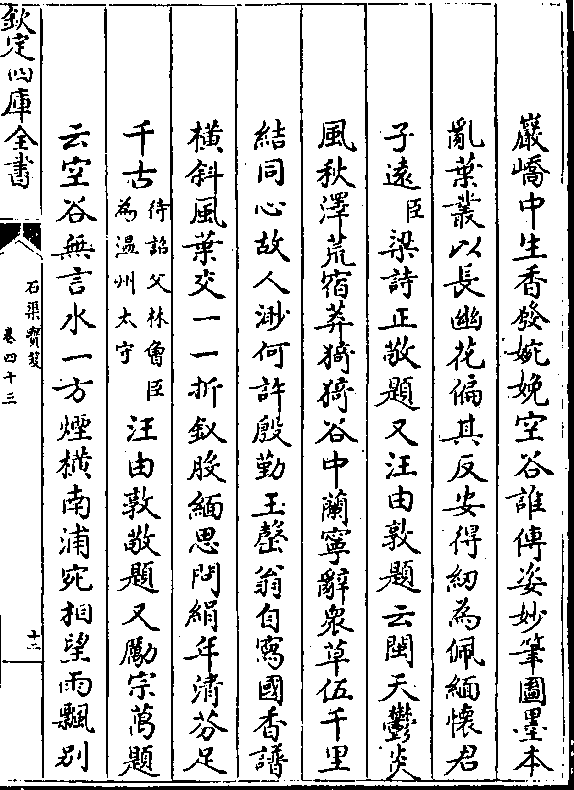 巖嶠中生香發婉娩空谷誰傳姿妙筆圖墨本
亂葉叢以長幽花偏其反安得紉為佩緬懷君
子遠臣梁詩正敬題又汪由敦題云閩天鬱炎
風秋澤荒宿莽猗猗谷中蘭寧辭衆草伍千里
結同心故人渺何許殷勤玉磬翁自寫國香譜
橫斜風葉交一一折釵股緬思閟絹年清芬足
千古待詔父林魯臣為温州太守汪由敦敬題又勵宗萬題
云空谷無言水一方煙橫南浦宛相望雨飄別
欽定四庫全書
石渠寶笈
卷四十三
十二